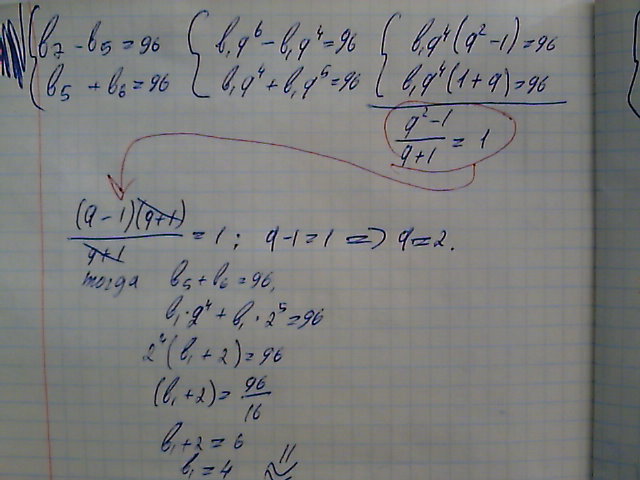 b₇ - b₅ = 96 b₁q⁶ - b₁q⁴ = 96 b₁q⁴(q² - 1) = 96
b₅ + b₆ = 96 b₁q⁴ + b₁q⁵ = 96 b₁q⁴(1 + q) = 96
(q² - 1)/(q + 1) = 1
(q - 1)(q + 1)/(q + 1) = 1; q - 1 = 1 => q = 2.
тогда b₅ + b₆ = 96,
b₁ · 2⁴ + b₁ · 2⁵ = 96
2⁴(b₁ + 2) = 96
(b₁ + 2) = 96/16
b₁ + 2 = 6
b₁ = 4